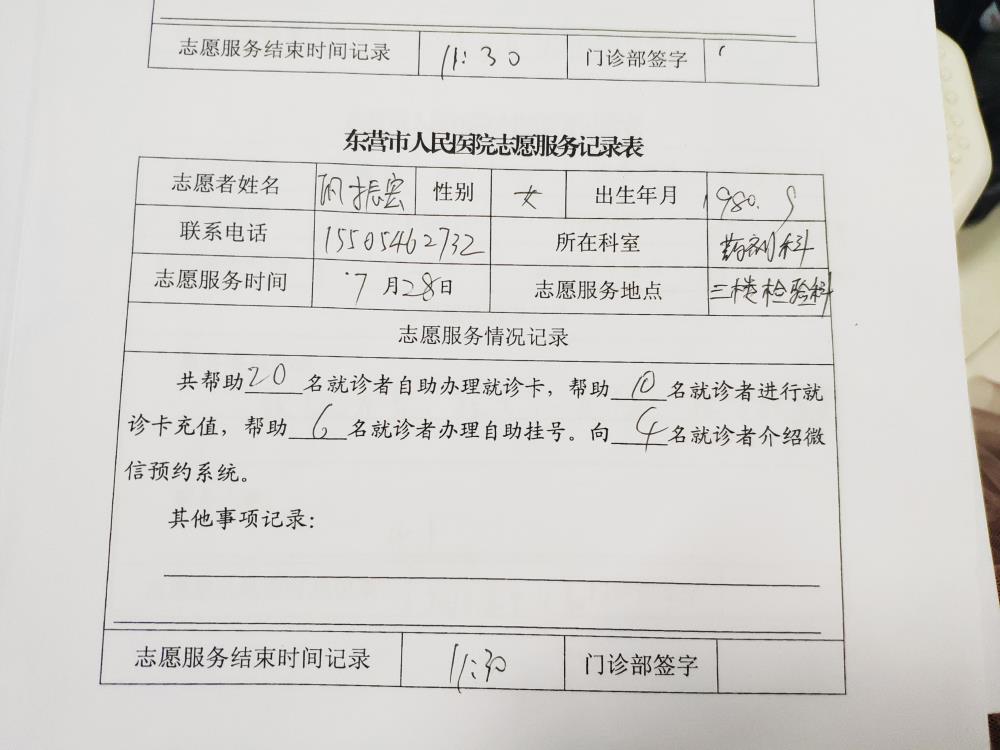 志愿服务结束时间记录 11:30 门诊部签字
东营市人民医院志愿服务记录表
志愿者姓名 振宏 性别 女 出生年月 1980.9
联系电话 15505462732 所在科室 药剂科
志愿服务时间 7月28日 志愿服务地点 三楼检验科
志愿服务情况记录
共帮助20名就诊者自助办理就诊卡，帮助10名就诊者进行就
诊卡充值，帮助6名就诊者办理自助挂号。向4名就诊者介绍微
信预约系统。
其他事项记录：
志愿服务结束时间记录 11:30 门诊部签字